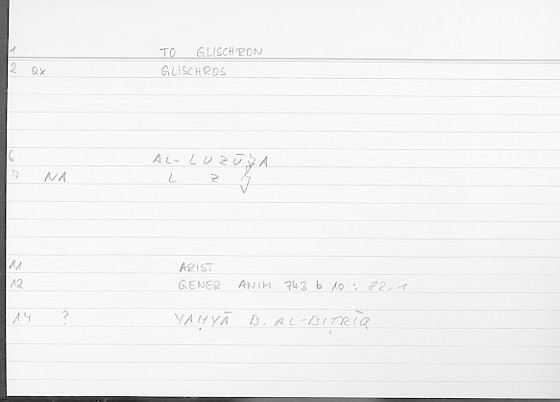 1 TO GLISCHRON
2 QX GLISCHROS
6 AL-LUZŪǦA
7 NA L Z Ǧ
11 ARIST
12 GENER ANIM 743 b 10 : 82-1
14 ? YAḤYĀ B. AL-BIṬRĪQ